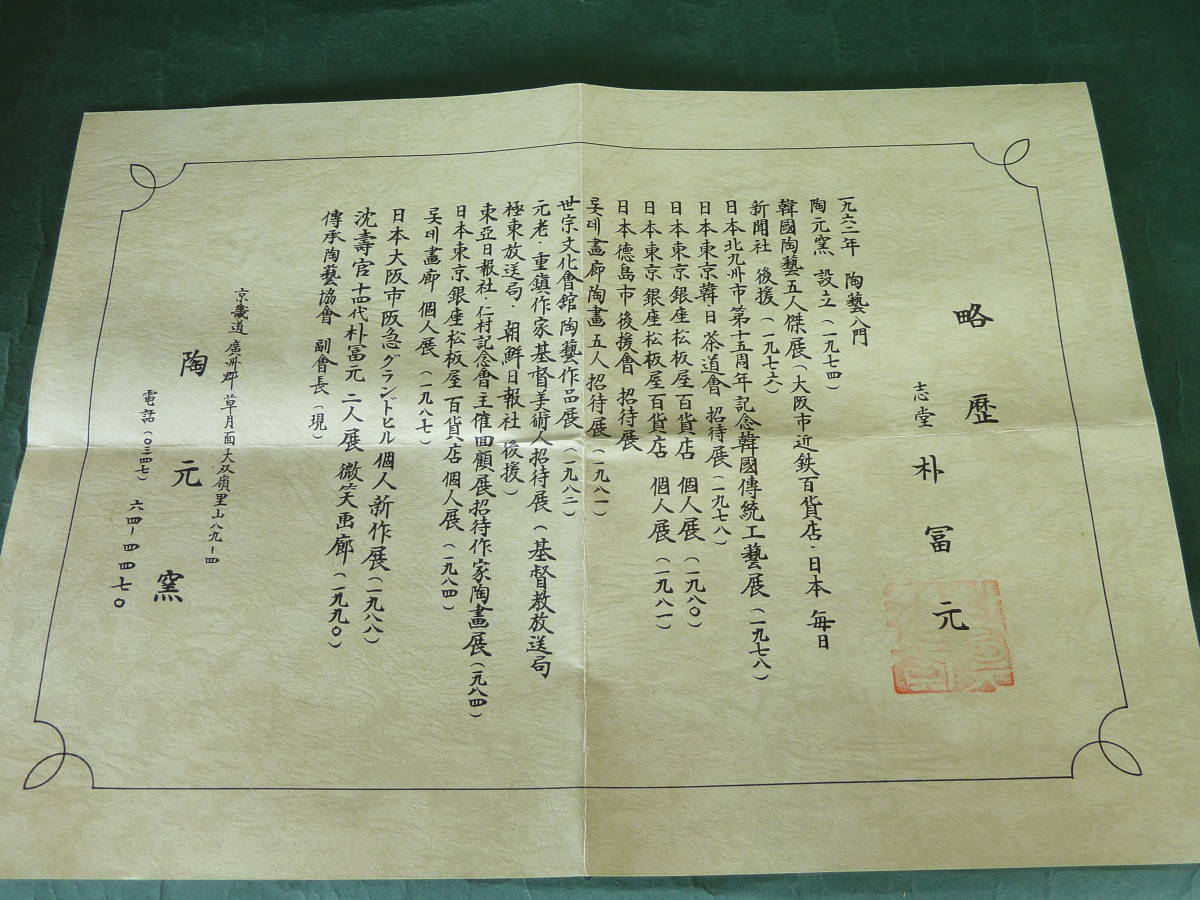 略歴
志堂 朴冨元
一九六二年 陶藝入門
陶元窯 設立(一九七四)
韓國陶藝五人傑展(大阪市近鉄百貨店·日本 每日
新聞社 後援(一九七六)
日本北九州市第十五周年記念韓國傳統工藝展(一九七八)
日本東京韓·日 茶道會 招待展(一九七八)
日本東京銀座松板屋百貨店 個人展(一九八〇)
日本東京銀座松板屋百貨店 個人展(一九八一)
日本德島市後援會 招待展
롯데畫廊陶畫五人招待展(一九八一)
世宗文化會館陶藝作品展(一九八二)
元老·重鎮作家基督美術人招待展(基督教放送局
極東放送局·朝鮮日報社 後援)
東亞日報社·仁村記念會主催回顧展招待作家陶畫展(一九八四)
日本東京銀座松板屋百貨店個人展(一九八四)
롯데畫廊 個人展(一九八七)
日本大阪市阪急グランドヒル個人新作展(一九八八)
沈壽官十四代朴冨元二人展 微笑画廊(一九九〇)
傳承陶藝協會 副會長(現)
京畿道 廣州郡 草月面大双嶺里山八九-四
陶元窯
電話(〇三四七) 六四-四四七〇